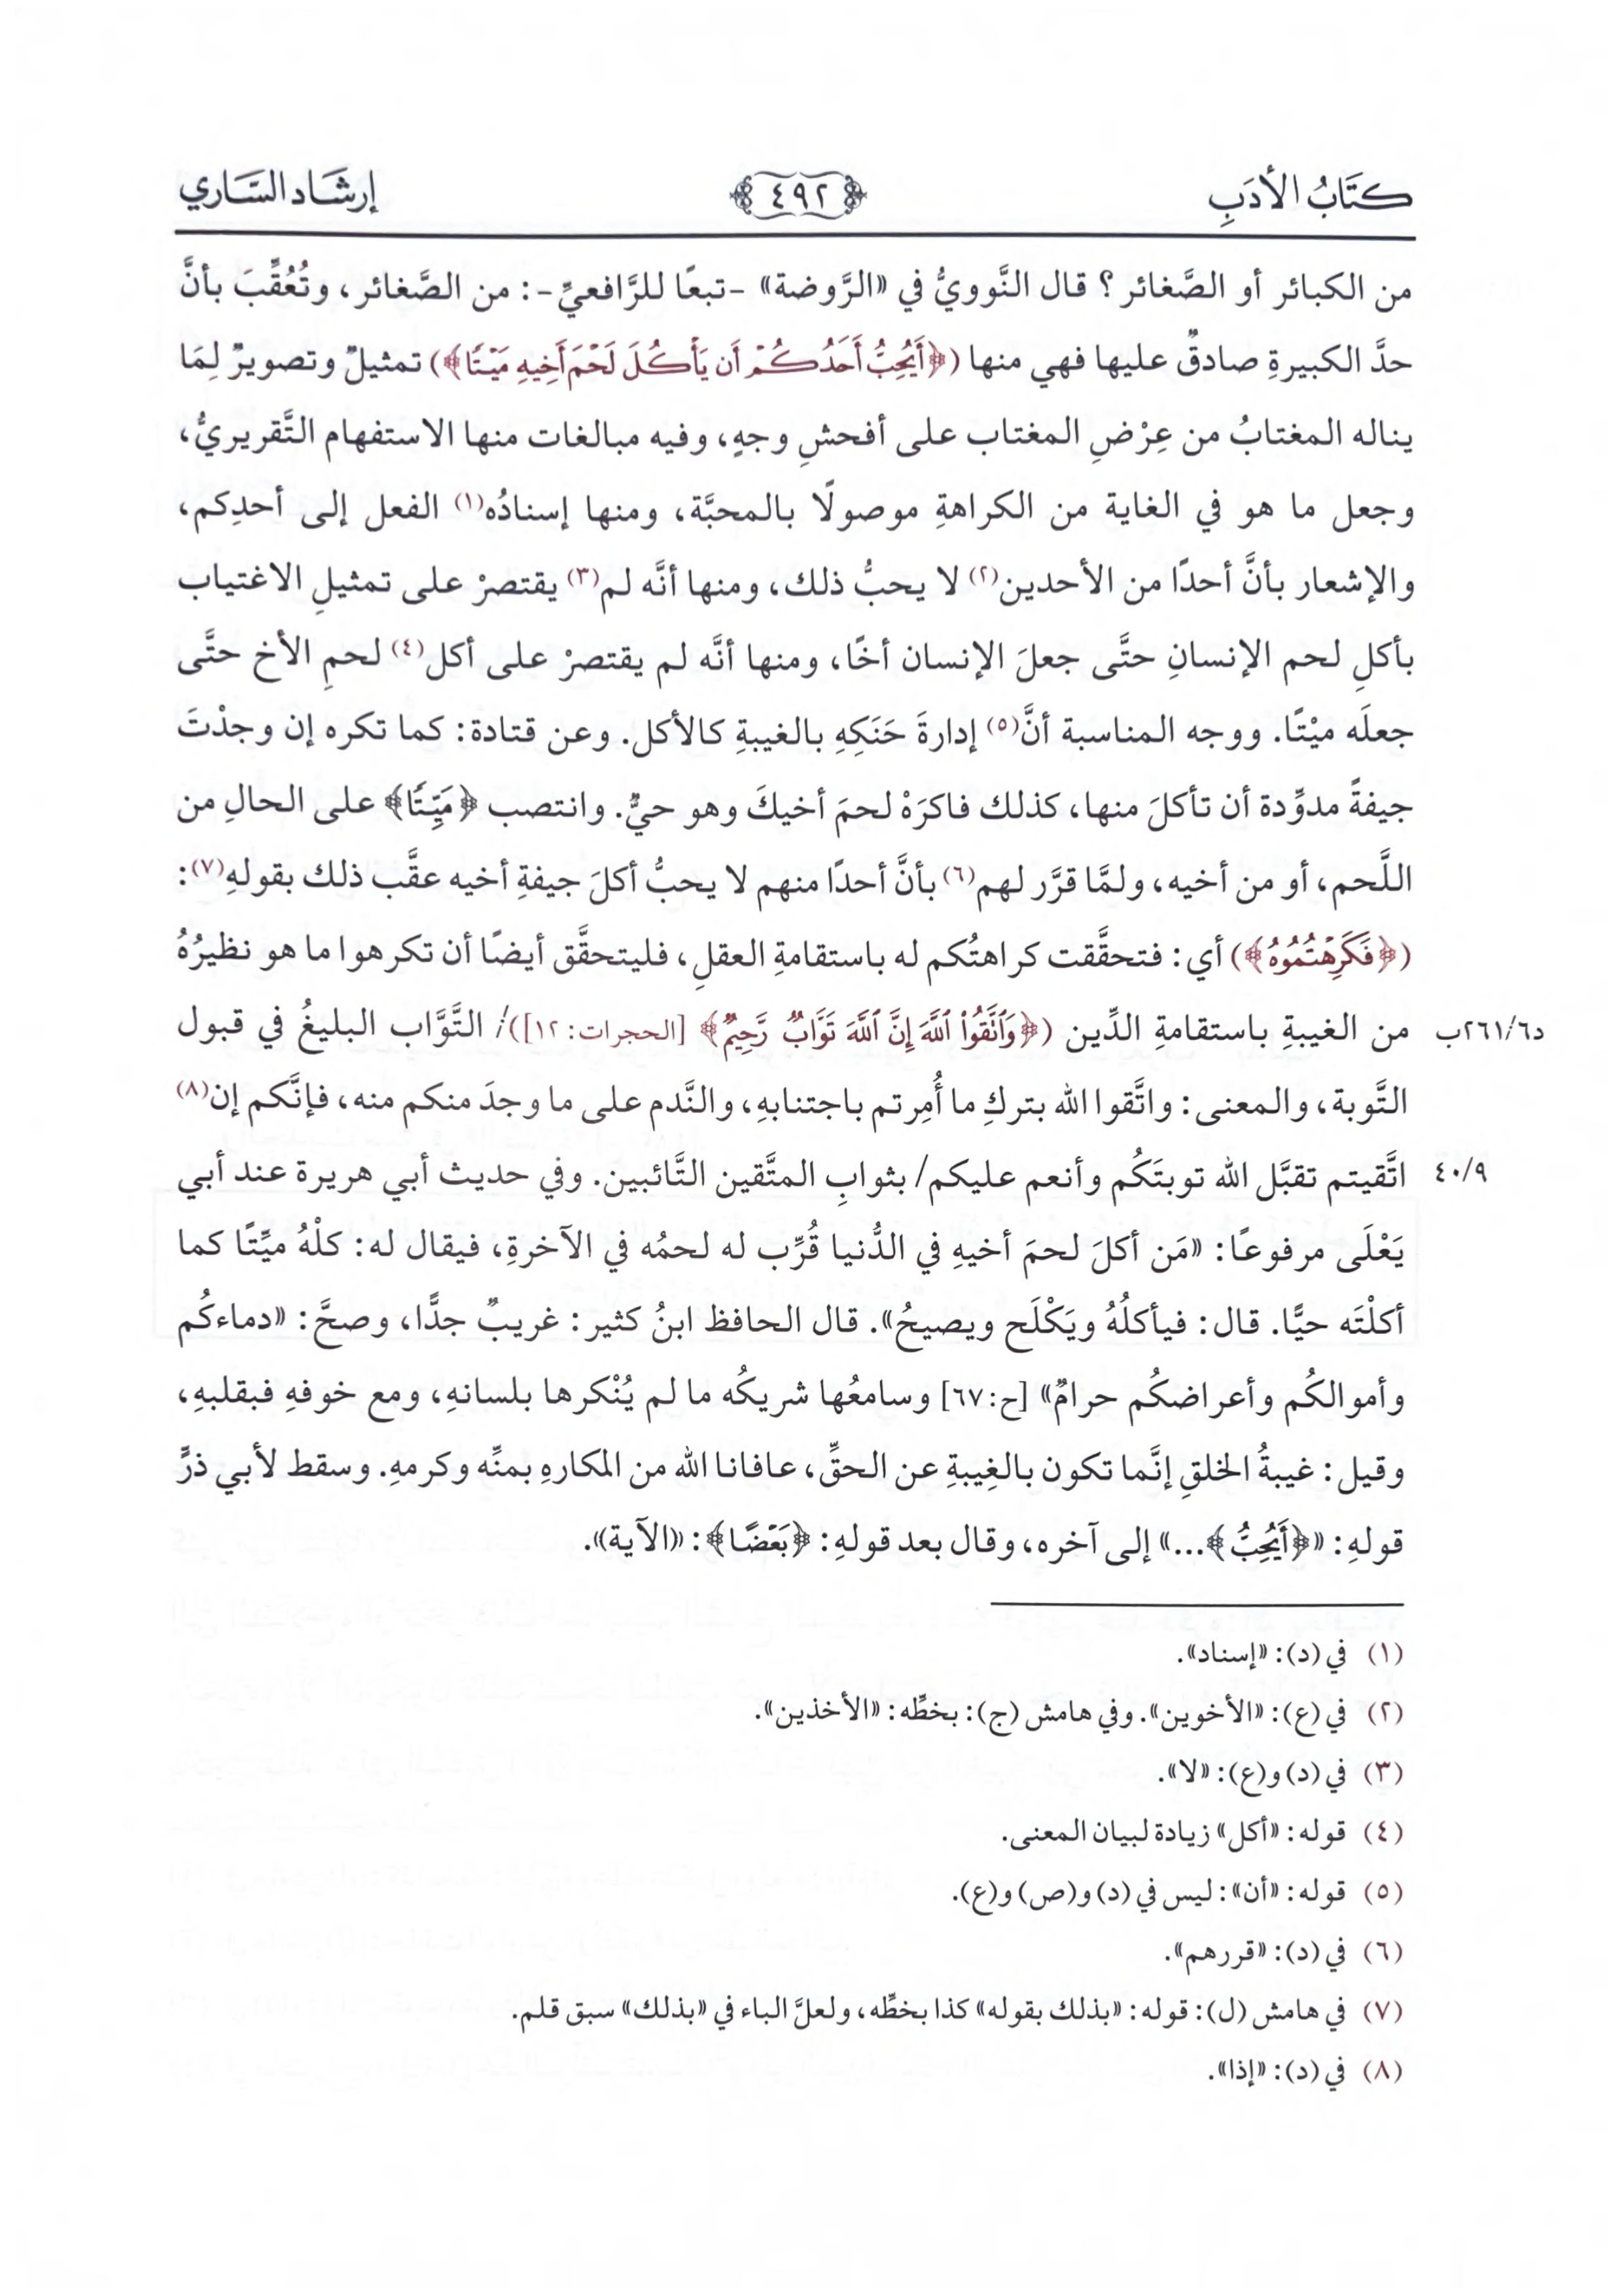 كتَابُ الأدَبِ ﴿٤٩٢﴾ إرشَاد السَّاري
من الكبائر أو الصَّغائر؟ قال النَّوويُّ في «الرَّوضة» -تبعًا للرَّافعيِّ-: من الصَّغائر، وتُعُقِّبَ بأنَّ
حدَّ الكبيرةِ صادقٌ عليها فهي منها (﴿أَيُحِبُّ أَحَدُكُمْ أَن يَأْكُلَ لَحْمَ أَخِيهِ مَيْتًا﴾) تمثيلٌ وتصويرٌ لِمَا
يناله المغتابُ من عِرْضِ المغتاب على أفحشِ وجهٍ، وفيه مبالغات منها الاستفهام التَّقريريُّ،
وجعل ما هو في الغاية من الكراهةِ موصولًا بالمحبَّة، ومنها إسنادُه(١) الفعل إلى أحدِكم،
والإشعار بأنَّ أحدًا من الأحدين(٢) لا يحبُّ ذلك، ومنها أنَّه لم(٣) يقتصرْ على تمثيلِ الاغتياب
بأكلِ لحم الإنسانِ حتَّى جعلَ الإنسان أخًا، ومنها أنَّه لم يقتصرْ على أكل(٤) لحمِ الأخ حتَّى
جعلَه ميْتًا. ووجه المناسبة أنَّ(٥) إدارةَ حَنَكِهِ بالغيبةِ كالأكل. وعن قتادة: كما تكره إن وجدْتَ
جيفةً مدوِّدة أن تأكلَ منها، كذلك فاكرَهْ لحمَ أخيكَ وهو حيٌّ. وانتصب ﴿مَيِّتًا﴾ على الحالِ من
اللَّحم، أو من أخيه، ولمَّا قرَّر لهم(٦) بأنَّ أحدًا منهم لا يحبُّ أكلَ جيفةِ أخيه عقَّب ذلك بقولهِ(٧):
(﴿فَكَرِهْتُمُوهُ﴾) أي: فتحقَّقت كراهتُكم له باستقامةِ العقلِ، فليتحقَّق أيضًا أن تكرهوا ما هو نظيرُهُ
من الغيبةِ باستقامةِ الدِّين (﴿وَٱتَّقُوا۟ ٱللَّهَ إِنَّ ٱللَّهَ تَوَّابٌ رَّحِيمٌ﴾ [الحجرات: ١٢])/ التَّوَّاب البليغُ في قبول
د٢٦١/٦ب
التَّوبة، والمعنى: واتَّقوا الله بتركِ ما أُمِرتم باجتنابهِ، والنَّدم على ما وجدَ منكم منه، فإنَّكم إن(٨)
اتَّقيتم تقبَّل الله توبتَكُم وأنعم عليكم/ بثوابِ المتَّقين التَّائبين. وفي حديث أبي هريرة عند أبي
٤٠/٩
يَعْلَى مرفوعًا: «مَن أكلَ لحمَ أخيهِ في الدُّنيا قُرِّب له لحمُه في الآخرةِ، فيقال له: كلْهُ ميِّتًا كما
أكلْتَه حيًّا. قال: فيأكلُهُ ويَكْلَح ويصيحُ». قال الحافظ ابنُ كثير: غريبٌ جدًّا، وصحَّ: «دماءكُم
وأموالكُم وأعراضكُم حرامٌ» [ح:٦٧] وسامعُها شريكُه ما لم يُنْكرها بلسانهِ، ومع خوفهِ فبقلبهِ،
وقيل: غيبةُ الخلقِ إنَّما تكون بالغِيبةِ عن الحقِّ، عافانا الله من المكارهِ بمنِّه وكرمهِ. وسقط لأبي ذرٍّ
قولهِ: «﴿أَيُحِبُّ﴾...» إلى آخره، وقال بعد قولهِ: ﴿بَعْضًا﴾: «الآية».
(١) في (د): «إسناد».
(٢) في (ع): «الأخوين». وفي هامش (ج): بخطِّه: «الأخذين».
(٣) في (د) و(ع): «لا».
(٤) قوله: «أكل» زيادة لبيان المعنى.
(٥) قوله: «أن»: ليس في (د) و(ص) و(ع).
(٦) في (د): «قررهم».
(٧) في هامش (ل): قوله: «بذلك بقوله» كذا بخطِّه، ولعلَّ الباء في «بذلك» سبق قلم.
(٨) في (د): «إذا».